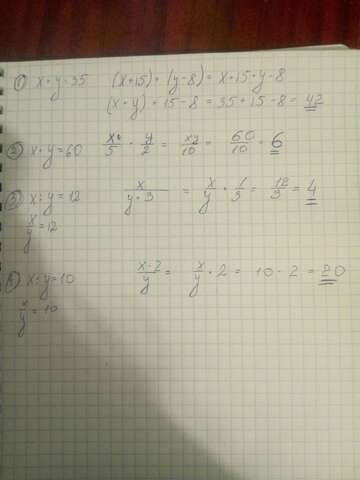 ① x+y=35 (x+15)+(y-8)=x+15+y-8
(x+y)+15-8=35+15-8=42
② x·y=60 x/5 · y/2 = xy/10 = 60/10 = 6
③ x:y=12 x/(y·3) = x/y · 1/3 = 12/3 = 4
x/y=12
④ x:y=10 x·2/y = x/y · 2 = 10·2 = 20
x/y=10